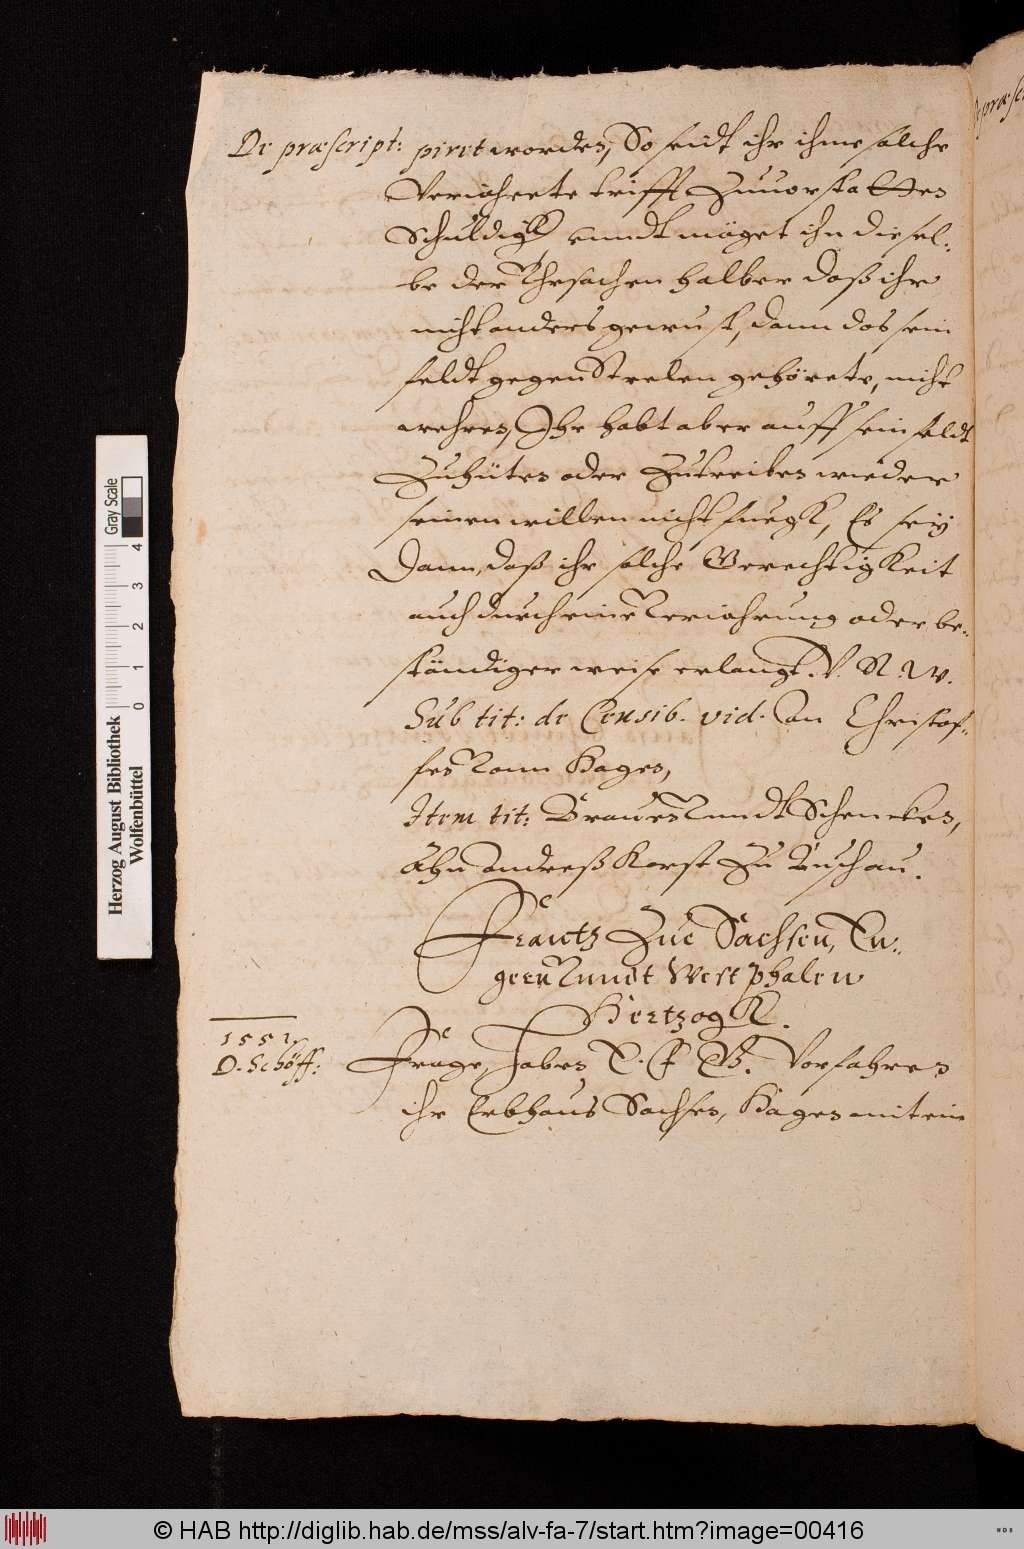 De præscript: piret worden, So seidt ihr ihme solche
Verjahrte trifft Zuuorstatten
Schuldigk, vnndt möget ihn diesel-
be der Vhrsachen halber daß ihr
nicht anders gewust, dann das sein
feldt gegen Strelen gehörete, nicht
wehren, Ihr habt aber auff sein feldt
Zuhüten oder Zutreiben wieder
seinen willen nicht fuegk, Es sey
Dann, daß ihr solche Gerechtigkeit
auch durch eine Verjahrung oder be-
ständiger weise erlangt. V. R. W.
Sub tit: de Censib. vid. an Christof-
fen vonn Hagen,
Item tit: Brauen vnndt Schencken,
Ahn Andreß Korst Zu Buchau.
Frantz Zue Sachsen, En-
gern vnndt Westphalen
Hertzogk.
1552
D. Schöff: Frage, Haben E. F. G. Vorfahren
ihr Erbhaus Sachsen, Hagen mit ein
Herzog August Bibliothek
Wolfenbüttel
0 1 2 3 4
Gray Scale
© HAB http://diglib.hab.de/mss/alv-fa-7/start.htm?image=00416